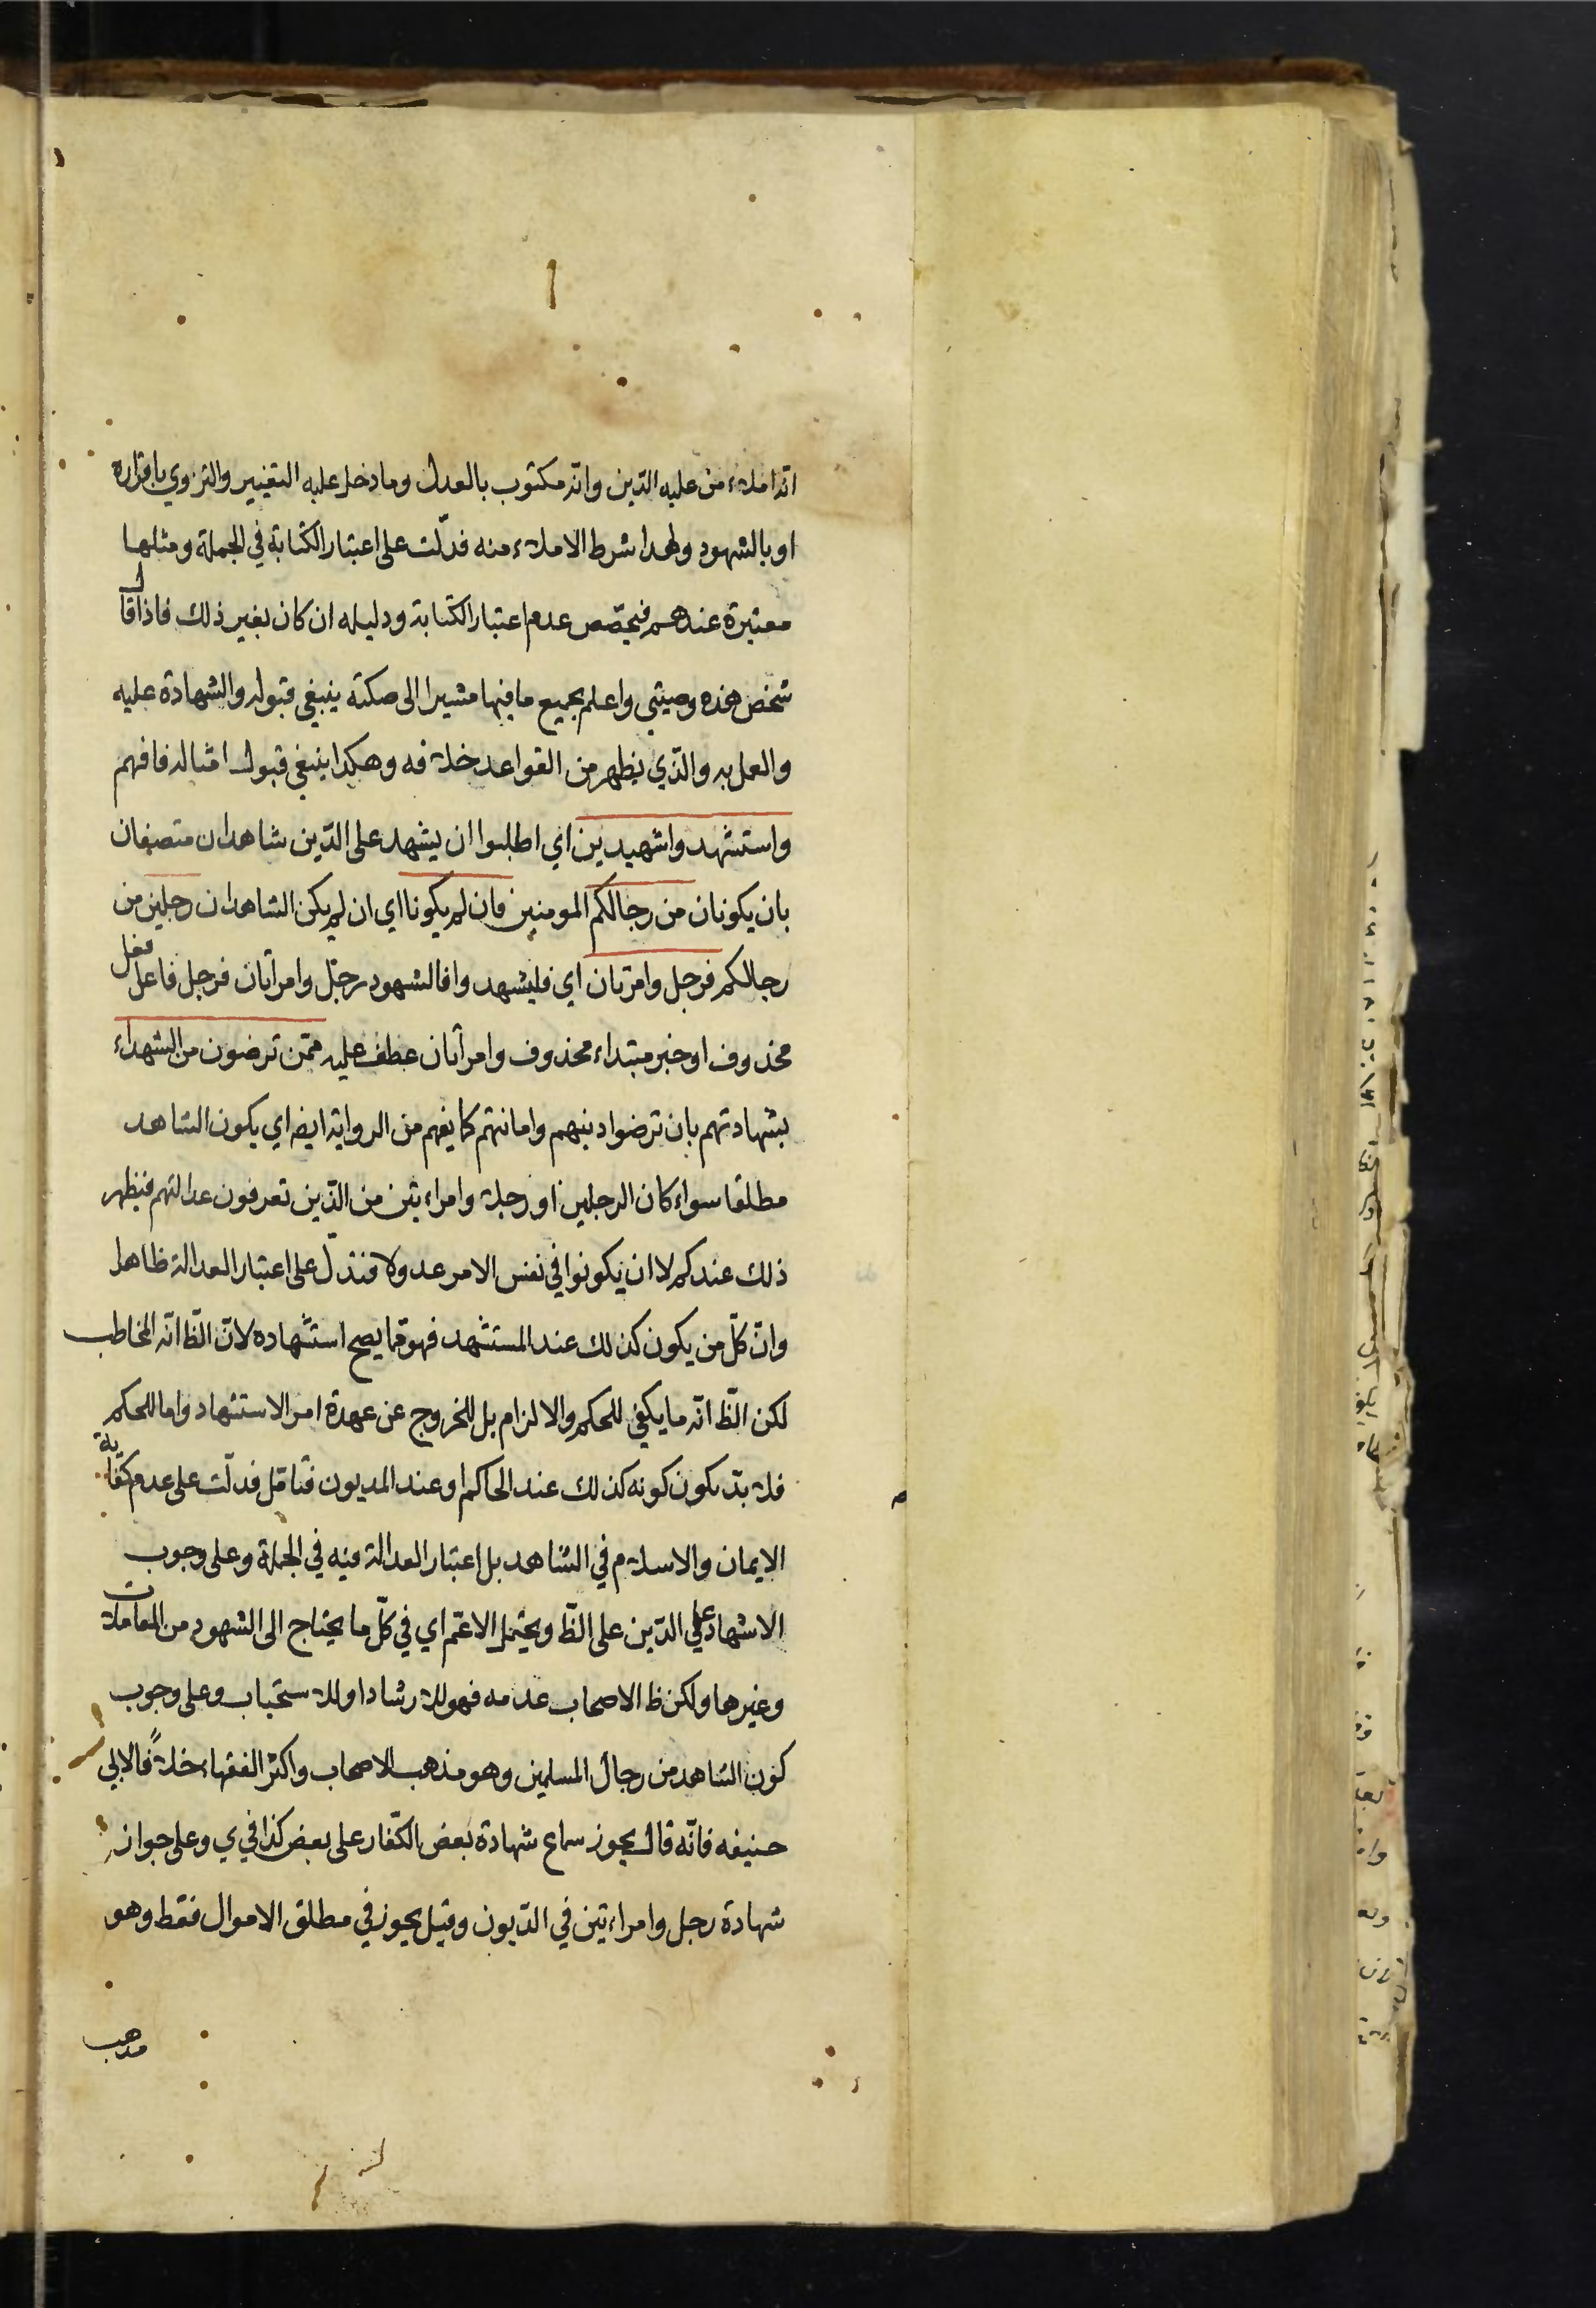 انه املاء من عليه الدّين وانّه مكتوب بالعدل وما دخل عليه التغيير والتزوير باقراره
او بالشهود ولهذا شرط الاملاء منه فدلّت على اعتبار الكتابة في الجملة ومثلها
معتبرة عندهم فيخصّص عدم اعتبار الكتابة ودليله ان كان بغير ذلك فاذا قال
شخص هذه وصيتي واعلم بجميع ما فيها مشيرا الى صكته ينبغي قبوله والشهادة عليه
والعمل به والذّي يظهر من القواعد خلافه وهكذا ينبغي قبول امثاله فافهم
واستشهدوا شهيدين اي اطلبوا ان يشهد على الدّين شاهدان متصفان
بان يكونان من رجالكم المومنين فان لم يكونا اي ان لم يكن الشاهدان رجلين من
رجالكم فرجل وامرتان اي فليشهد وا فالشهود رجل وامرأتان فرجل فاعل فعل
محذوف او خبر مبتداء محذوف وامرأتان عطف عليه ممّن ترضون من الشهداء
بشهادتهم بان ترضوا دينهم وامانتهم كما يفهم من الرواية ايضا اي يكون الشاهد
مطلقا سواء كان الرجلين او رجلا وامراءتين من الذّين تعرفون عدالتهم فيظهر
ذلك عندكم لا ان يكونوا في نفس الامر عدولا فتدلّ على اعتبار العدالة ظاهرا
وانّ كلّ من يكون كذلك عند المستشهد فهو ممّا يصح استشهاده لانّ الظّ انّه المخاطب
لكن الظّ انّه ما يكفي للحكم والالزام بل للخروج عن عهدة امر الاستشهاد واما للحكم
فلا بدّ يكون كونه كذلك عند الحاكم او عند المديون فتامّل فدلّت على عدم كفاية
الايمان والاسلام في الشاهد بل اعتبار العدالة فيه في الجملة وعلى وجوب
الاشهاد على الدّين على الظّ ويحتمل الاعمّ اي في كلّ ما يحتاج الى الشهود من المعاملات
وغيرها ولكن ظ الاصحاب عدمه فهو للارشاد او للاستحباب وعلى وجوب
كون الشاهد من رجال المسلمين وهو مذهب الاصحاب واكثر الفقهاء خلافًا لابي
حنيفه فانّه قال يجوز سماع شهادة بعض الكفّار على بعض كذا في ي وعلى جواز
شهادة رجل وامراءتين في الدّيون وقيل يجوز في مطلق الاموال فقط وهو
مذهب